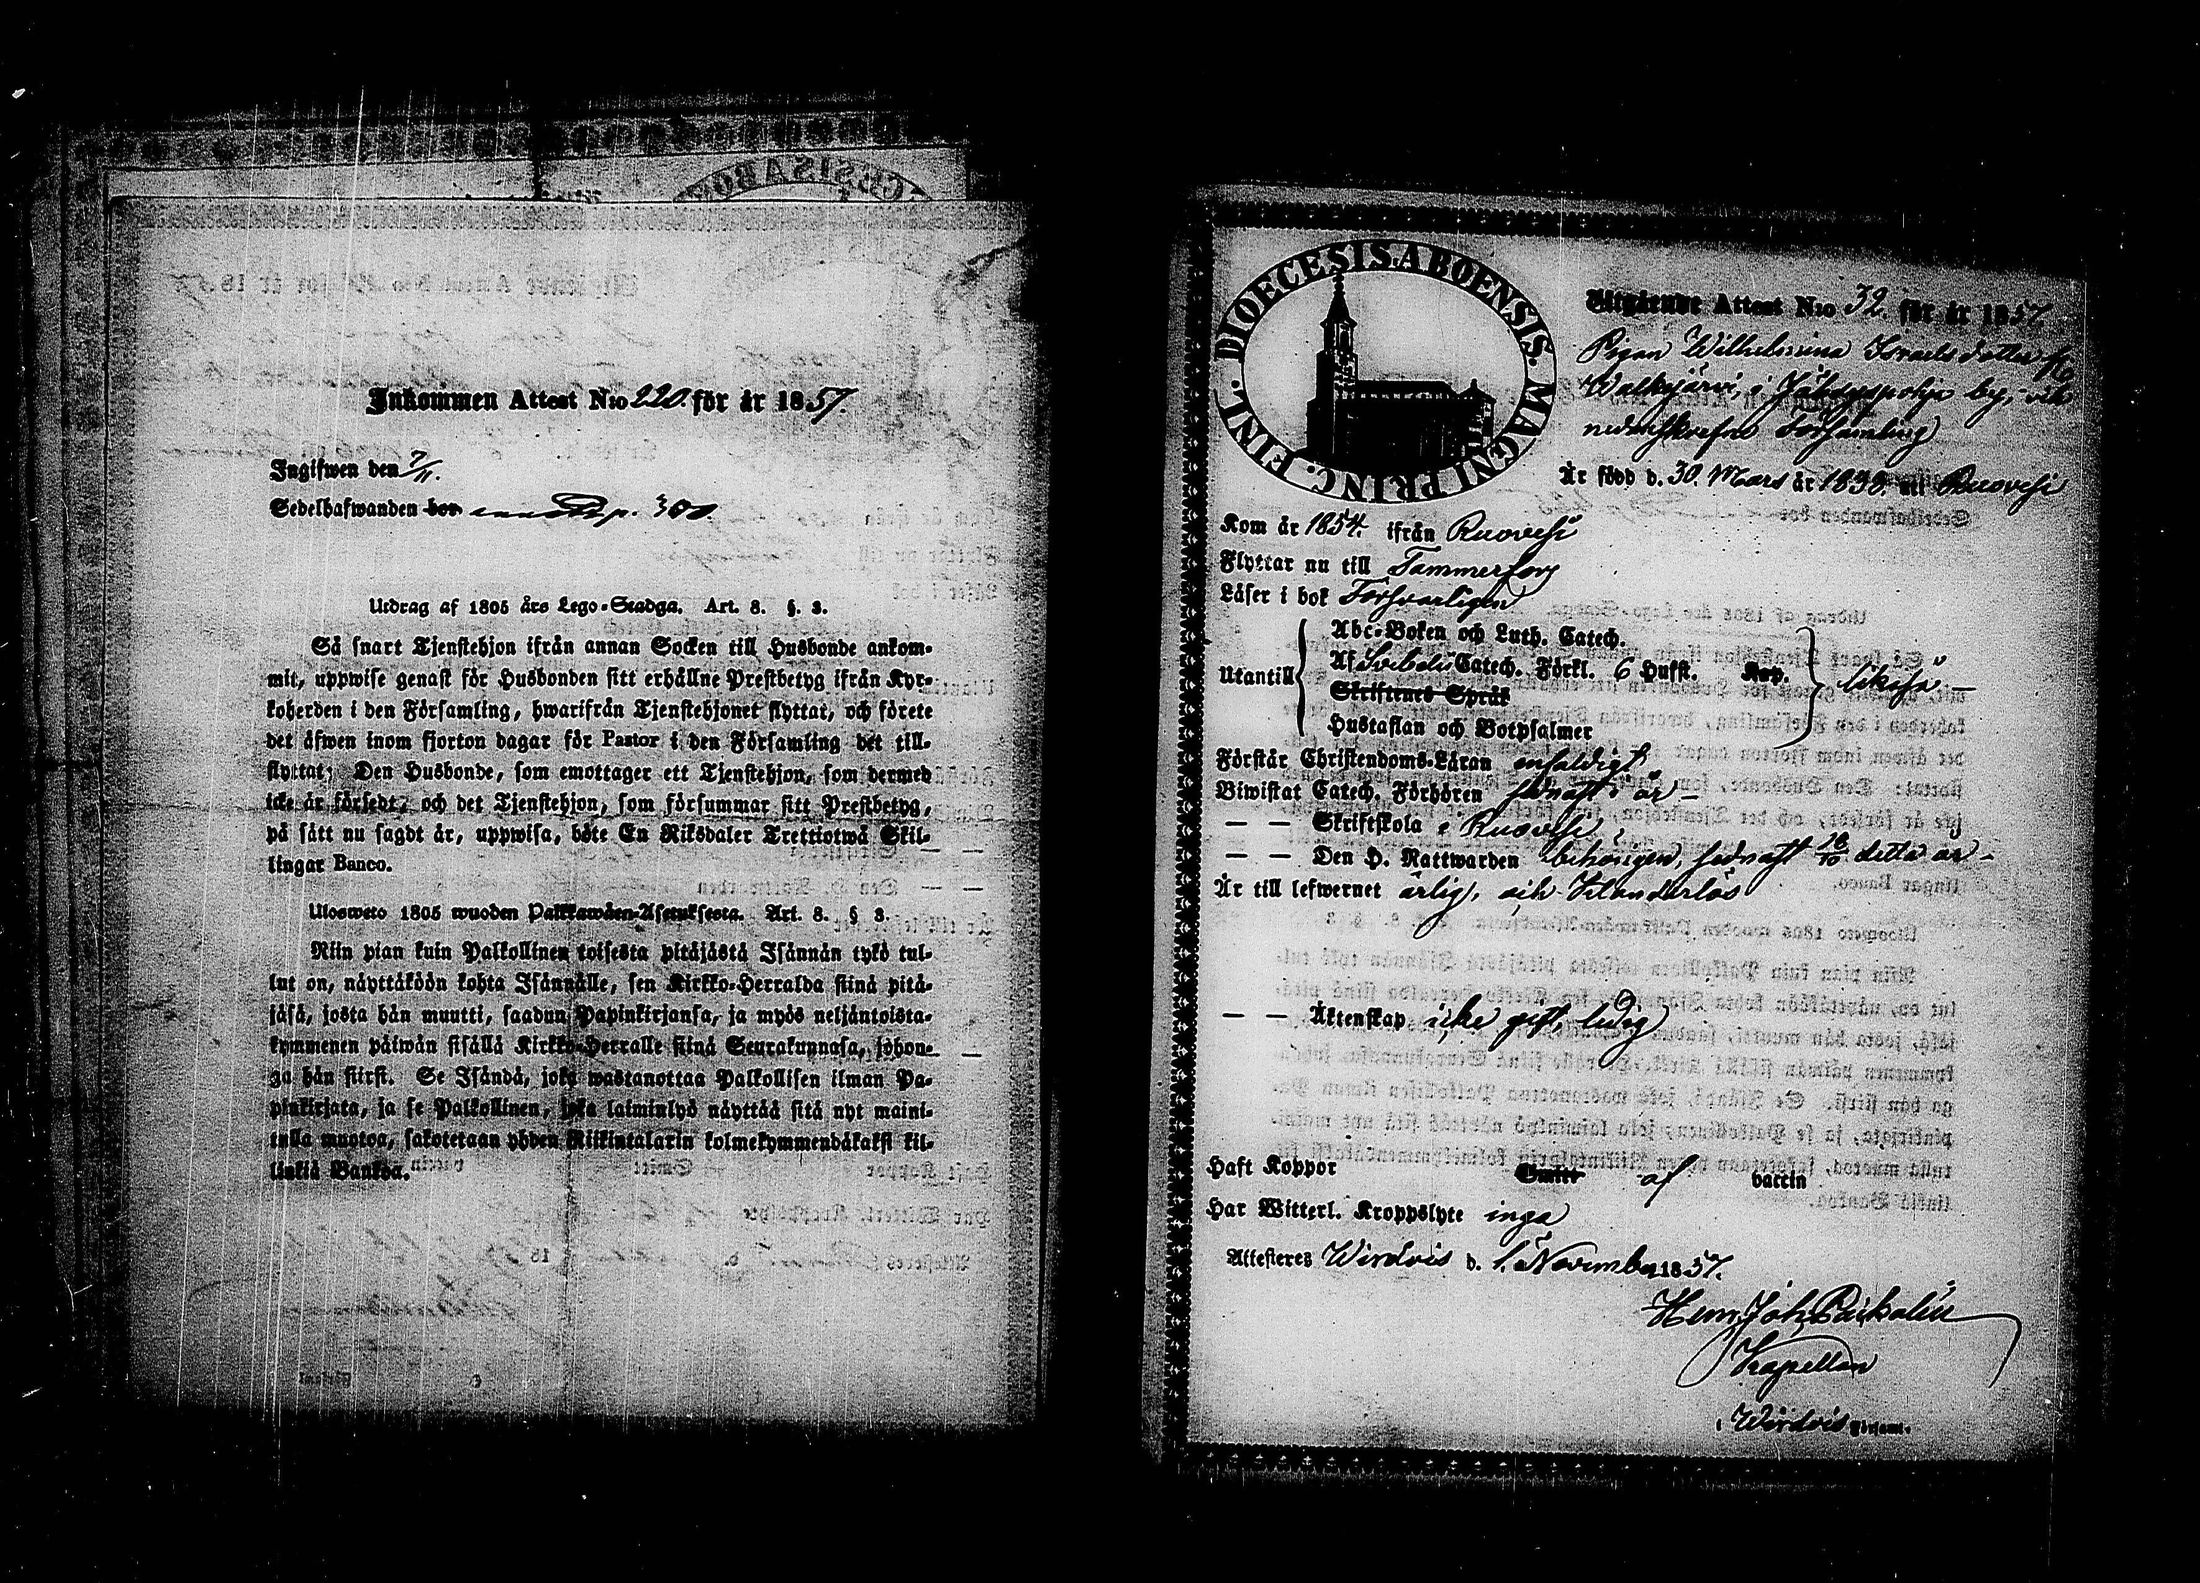 Inkommen Attest N:o 220. för år 1857.
Ingifwen den 7/11.
Sedelhafwanden bor 300
Utdrag af 1805 års Lego-Stadga. Art. 8. §. 3.
Så snart Tjenstehjon ifrån annan Socken till Husbonde ankom-
mit, uppwise genast för Husbonden sitt erhållne Prestbetyg ifrån Kyr-
koherden i den Församling, hwarifrån Tjenstehjonet flyttat, och förete
det äfwen inom fjorton dagar för Pastor i den Församling det till-
flyttat; Den Husbonde, som emottager ett Tjenstehjon, som dermed
icke är försedt, och det Tjenstehjon, som försummar sitt Prestbetyg,
på sätt nu sagdt är, uppwisa, böte En Riksdaler Trettiotwå Skil-
lingar Banco.
Ulosweto 1805 wuoden Palkkawäen-Asetuksesta. Art. 8. § 3.
Niin pian kuin Palkollinen toisesta pitäjästä Isännän tykö tul-
lut on, näyttäköön kohta Isännälle, sen Kirkko-Herralda siinä pitä-
jäsä, josta hän muutti, saadun Papinkirjansa, ja myös neljäntoista-
kymmenen päiwän sisällä Kirkko-Herralle siinä Seurakunnasa, johon-
ga hän siirsi. Se Isändä, joka wastanottaa Palkollisen ilman Pa-
pinkirjata, ja se Palkollinen, joka laiminlyö näyttää sitä nyt maini-
tulla muotoa, sakotetaan yhden Riikintalarin kolmekymmendäkaksi kil-
linkiä Bankoa.
DIOECESIS ABOENSIS. MAGNI PRINC. FINL.
Utgående Attest N:o 32. för år 1857.
Pigan Wilhelmina Israelsdotter fr.
Walkejärvi, i Jähdyspohja by, och
nedanskrefne Församling
Är född d. 30. Mars år 1838. uti Ruovesi
Kom år 1854. ifrån Ruovesi
Flyttar nu till Tammerfors
Läser i bok Försvarligen
Utantill
Abc-Boken och Luth. Catech.
Af Svebelii Catech. Förkl. 6 Hufst. Kap.
Skriftenes Språk
Hustaflan och Botpsalmer
likaså –
Förstår Christendoms-Läran enfaldigt
Biwistat Catech. Förhören sednast i år –
— — Skriftskola i Ruovesi
— — Den H. Nattwarden behörigen, sednast 18/10 detta år –
Är till lefwernet ärlig, och klanderlös
— — Äktenskap icke gift, ledig
Haft Koppor Smitt af vaccin
Har Witterl. Kroppslyte inga
Attesteras Wirdois d. 1. November 1857.
Henr. Joh.
Kapellan
i Wirdois Församl.